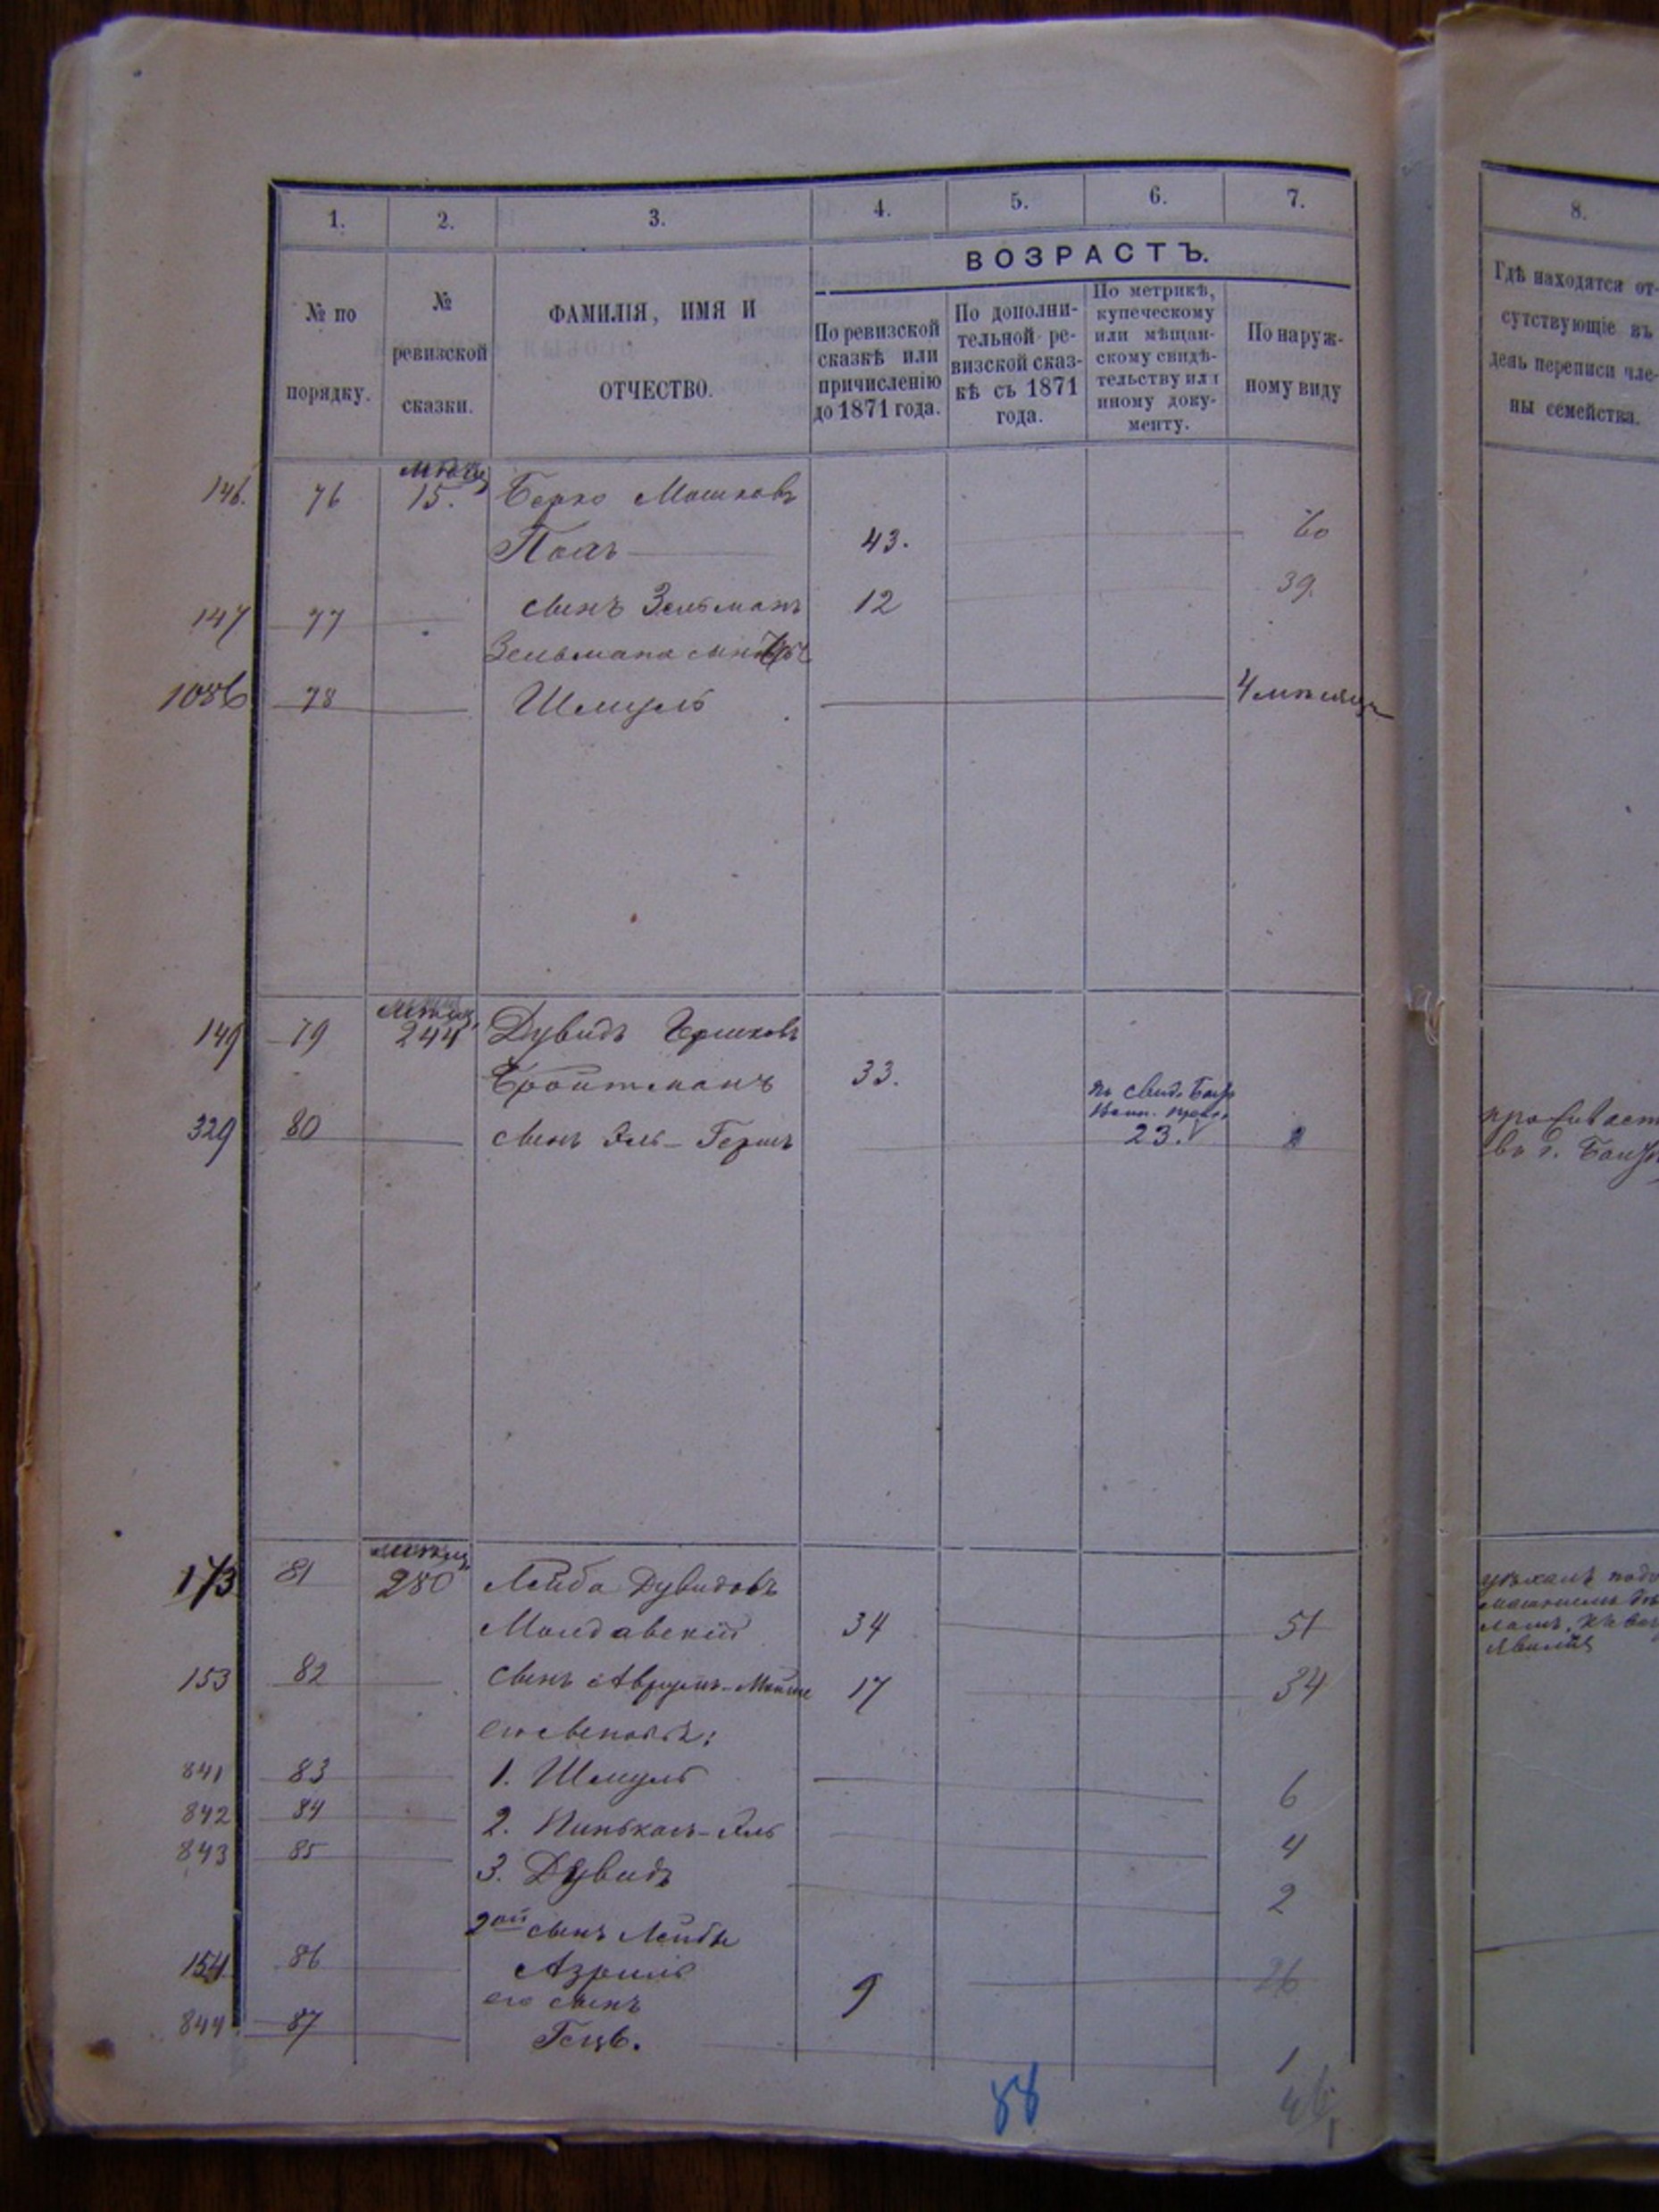 1. 2. 3. 4. 5. 6. 7. 8.
ВОЗРАСТЪ.
№ по
порядку.
№
ревизской
сказки.
ФАМИЛІЯ, ИМЯ И
ОТЧЕСТВО.
По ревизской
сказкѣ или
причисленію
до 1871 года.
По дополни-
тельной ре-
визской сказ-
кѣ съ 1871
года.
По метрикѣ,
купеческому
или мѣщан-
скому свидѣ-
тельству или
иному доку-
менту.
По наруж-
ному виду
Гдѣ находятся от-
сутствующіе въ
день переписи чле-
ны семейства.
146. 76 15. Берко Мошковъ
43. 60
147 77 сынъ Зельманъ 12 39.
Зельмана сынъ
1086 78 Шмуль 4 мѣсяца
149 79 244 Дувидъ Гершковъ
Бройтманъ 33.
по свид.
329 80 сынъ Эль-Гершъ 23.
проживает
въ г.
173 81 280 Лейба Дувидовъ
Молдавскій 34 51
153 82 сынъ Аврумъ-Мойше 17 34
его сыновья:
841 83 1. Шмуль 6
842 84 2. Пинькасъ-Эль 4
843 85 3. Дувидъ 2
2ой сынъ Лейбы
154 86 Азриль 9 26
его сынъ
844 87 Гецъ. 1
88